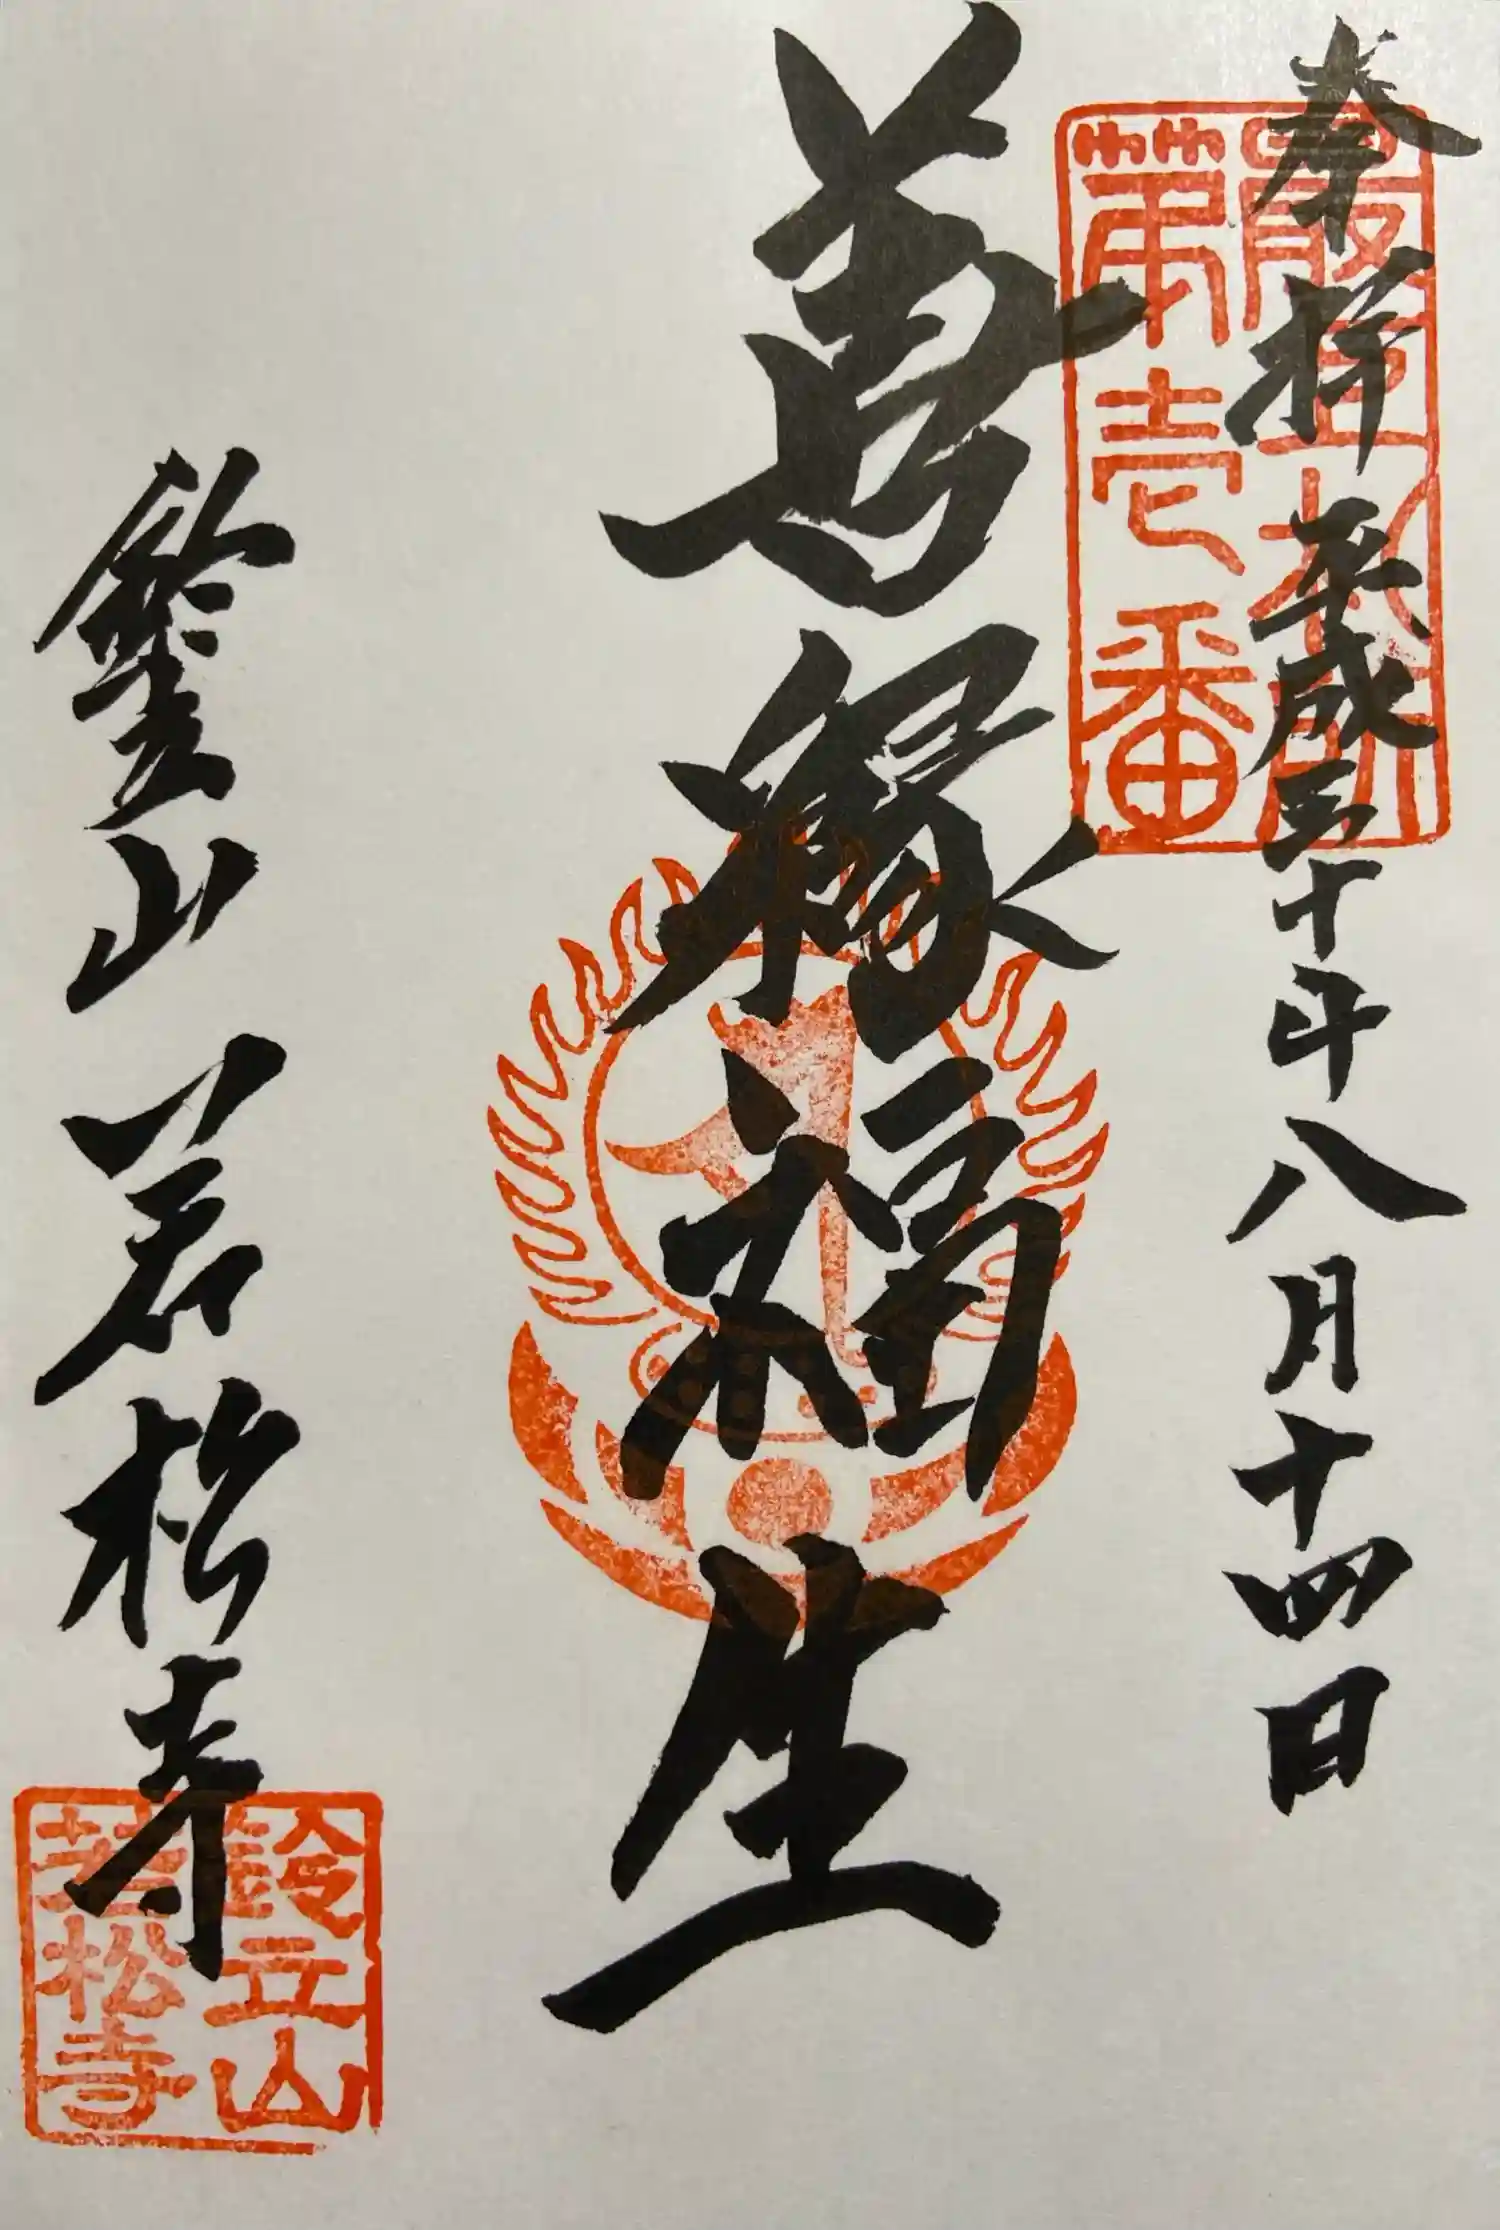 奉拝 平成三十年八月十四日
最上札所
第壱番
善縁福生
鈴立山 若松寺
鈴立山
若松寺